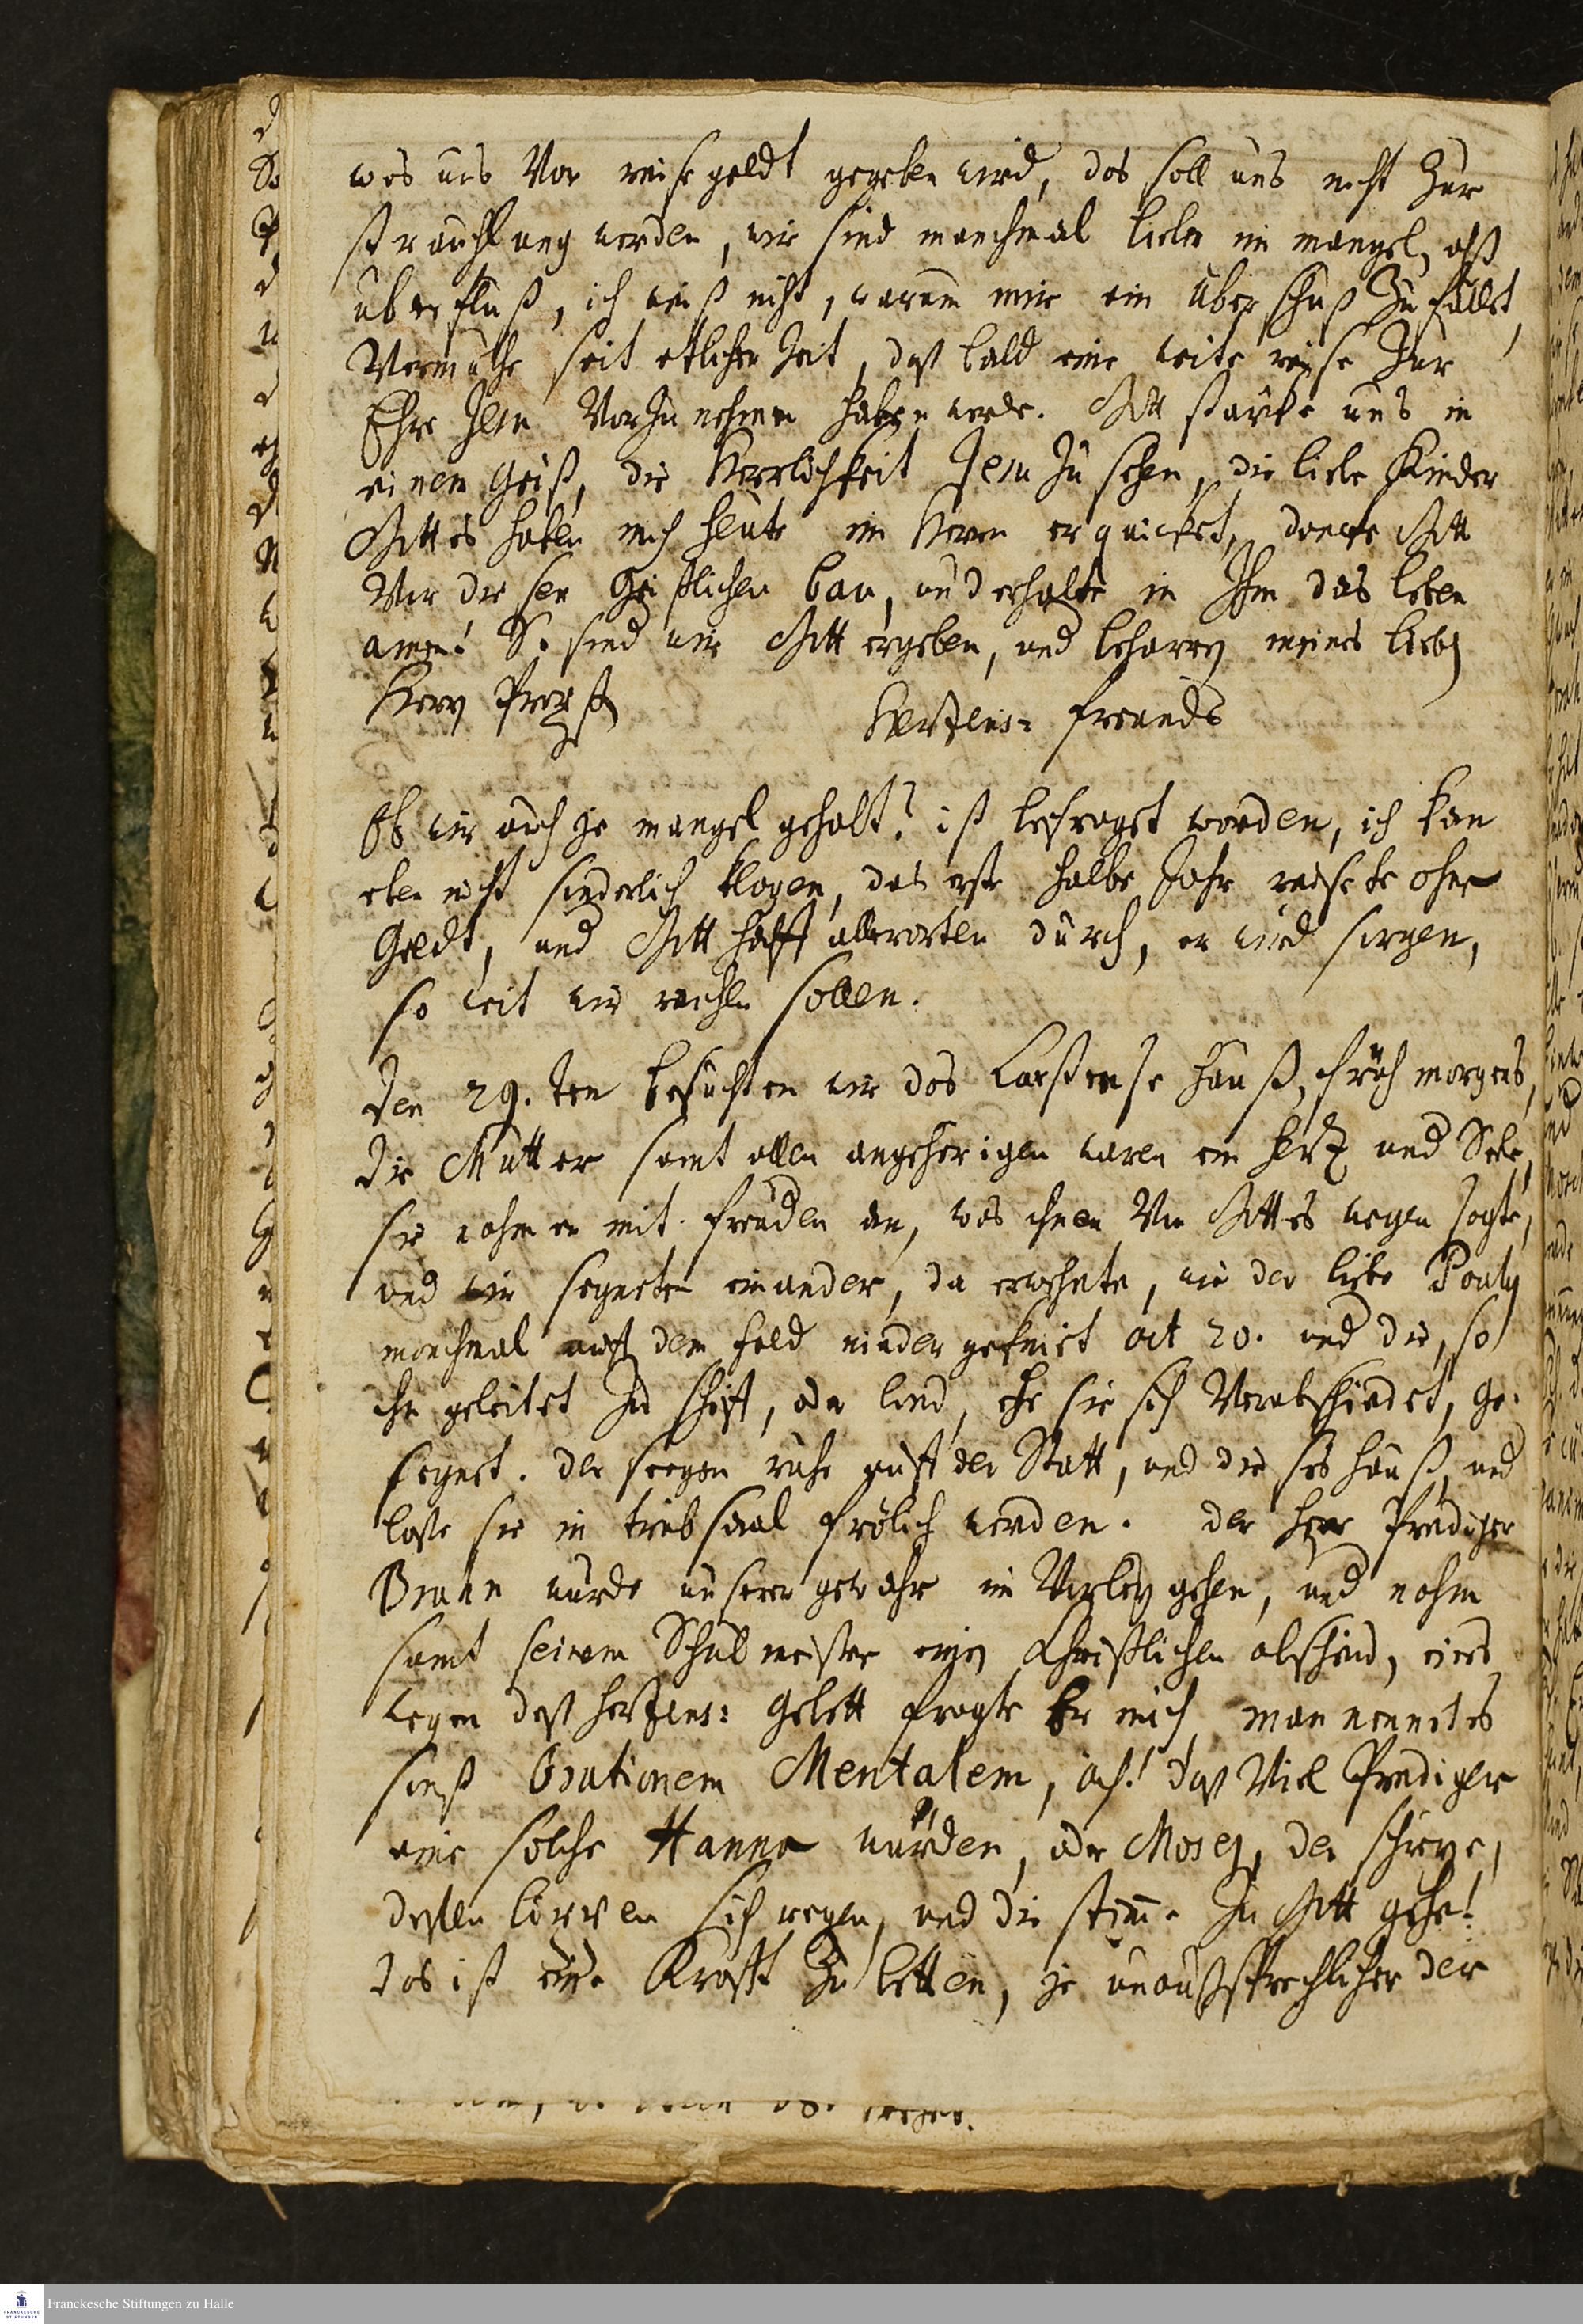 was uns Vor reisegeldt gegeben wird, das soll uns nicht zur
strauchlung werden, wir sind manchmal lieber im mangel, alß
überfluß, ich weiß nicht, warum mir ein überschuß zu fället,
Vermuthe seit etlicher Zeit, daß bald eine weite reyse zur
Ehre Jesu Vorzunehmen haben werde. Gott stärke uns in
einem Geist, die Herrlichkeit Jesu zu sehen, die liebe Kinder
Gottes haben mich heute im Herrn erquicket, dancke Gott
Vor diesen Geistlichen bau, und erhalte in Ihm das leben
amen! So sind wir Gott ergeben, und beharren meines lieben
Herrn Probst Hertzens= freunds
Ob wir auch je mangel gehabt? ist befraget worden, ich kan
eben nicht sonderlich klagen, das erste halbe Jahr reisete ohne
Geldt, und Gott halff allerorten durch, er wird sorgen,
so weit wir reisen sollen.
Den 29.ten besuchten wir das hauß, früh morgens,
die Mutter samt allen angehörigen waren ein hertz und Seele,
sie nahmen mit freuden an, was ihnen Von Gottes wegen sagte,
und wir segneten einander, da erwehnte, wie der liebe Pauly
manchmal auff dem feld nieder gekniet act 20. und die, so
ihn geleitet zu schiff, oder land, ehe sie sich Verabschiedet, ge-
segnet. der seegen ruhe auff der Statt, und dieses hauß, und
lasse sie in trübsaal frölich werden. der herr Prediger
Braun wurde unserer gewahr im Vorbey gehen, und nahm
samt seinem Schulmeister einen Christlichen abschied,
wegen deß hertzens= Gebett fragte Er mich, man nennet es
sonst Orationem Mentalem, ach! daß Viel Prediger
eine solche Hanna würden, oder Moses, der schreye,
dessen lippen sich regen, und die stimme zu Gott gehe!
das ist eine Krafft zu betten, je unaußsprechlicher der
Franckesche Stiftungen zu Halle